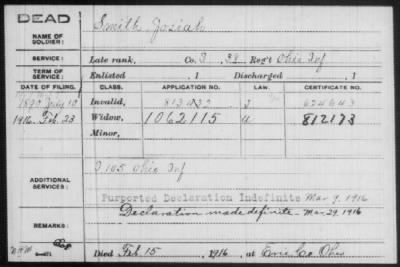 DEAD
NAME OF SOLDIER: Smith, Josiah
SERVICE: Late rank, Co. I 39 Reg't Ohio Inf
TERM OF SERVICE: Enlisted , 1 Discharged , 1
DATE OF FILING. CLASS. APPLICATION NO. LAW. CERTIFICATE NO.
1890 July 10 Invalid, 624643
1916 Feb. 23 Widow, 1062115 812173
Minor,
ADDITIONAL SERVICES: I 105 Ohio Inf
Purported Declaration Indefinite Mar 9, 1916
REMARKS: Declaration made definite - Mar. 29, 1916
Died Feb 15, 1916, at Erie Co Ohio